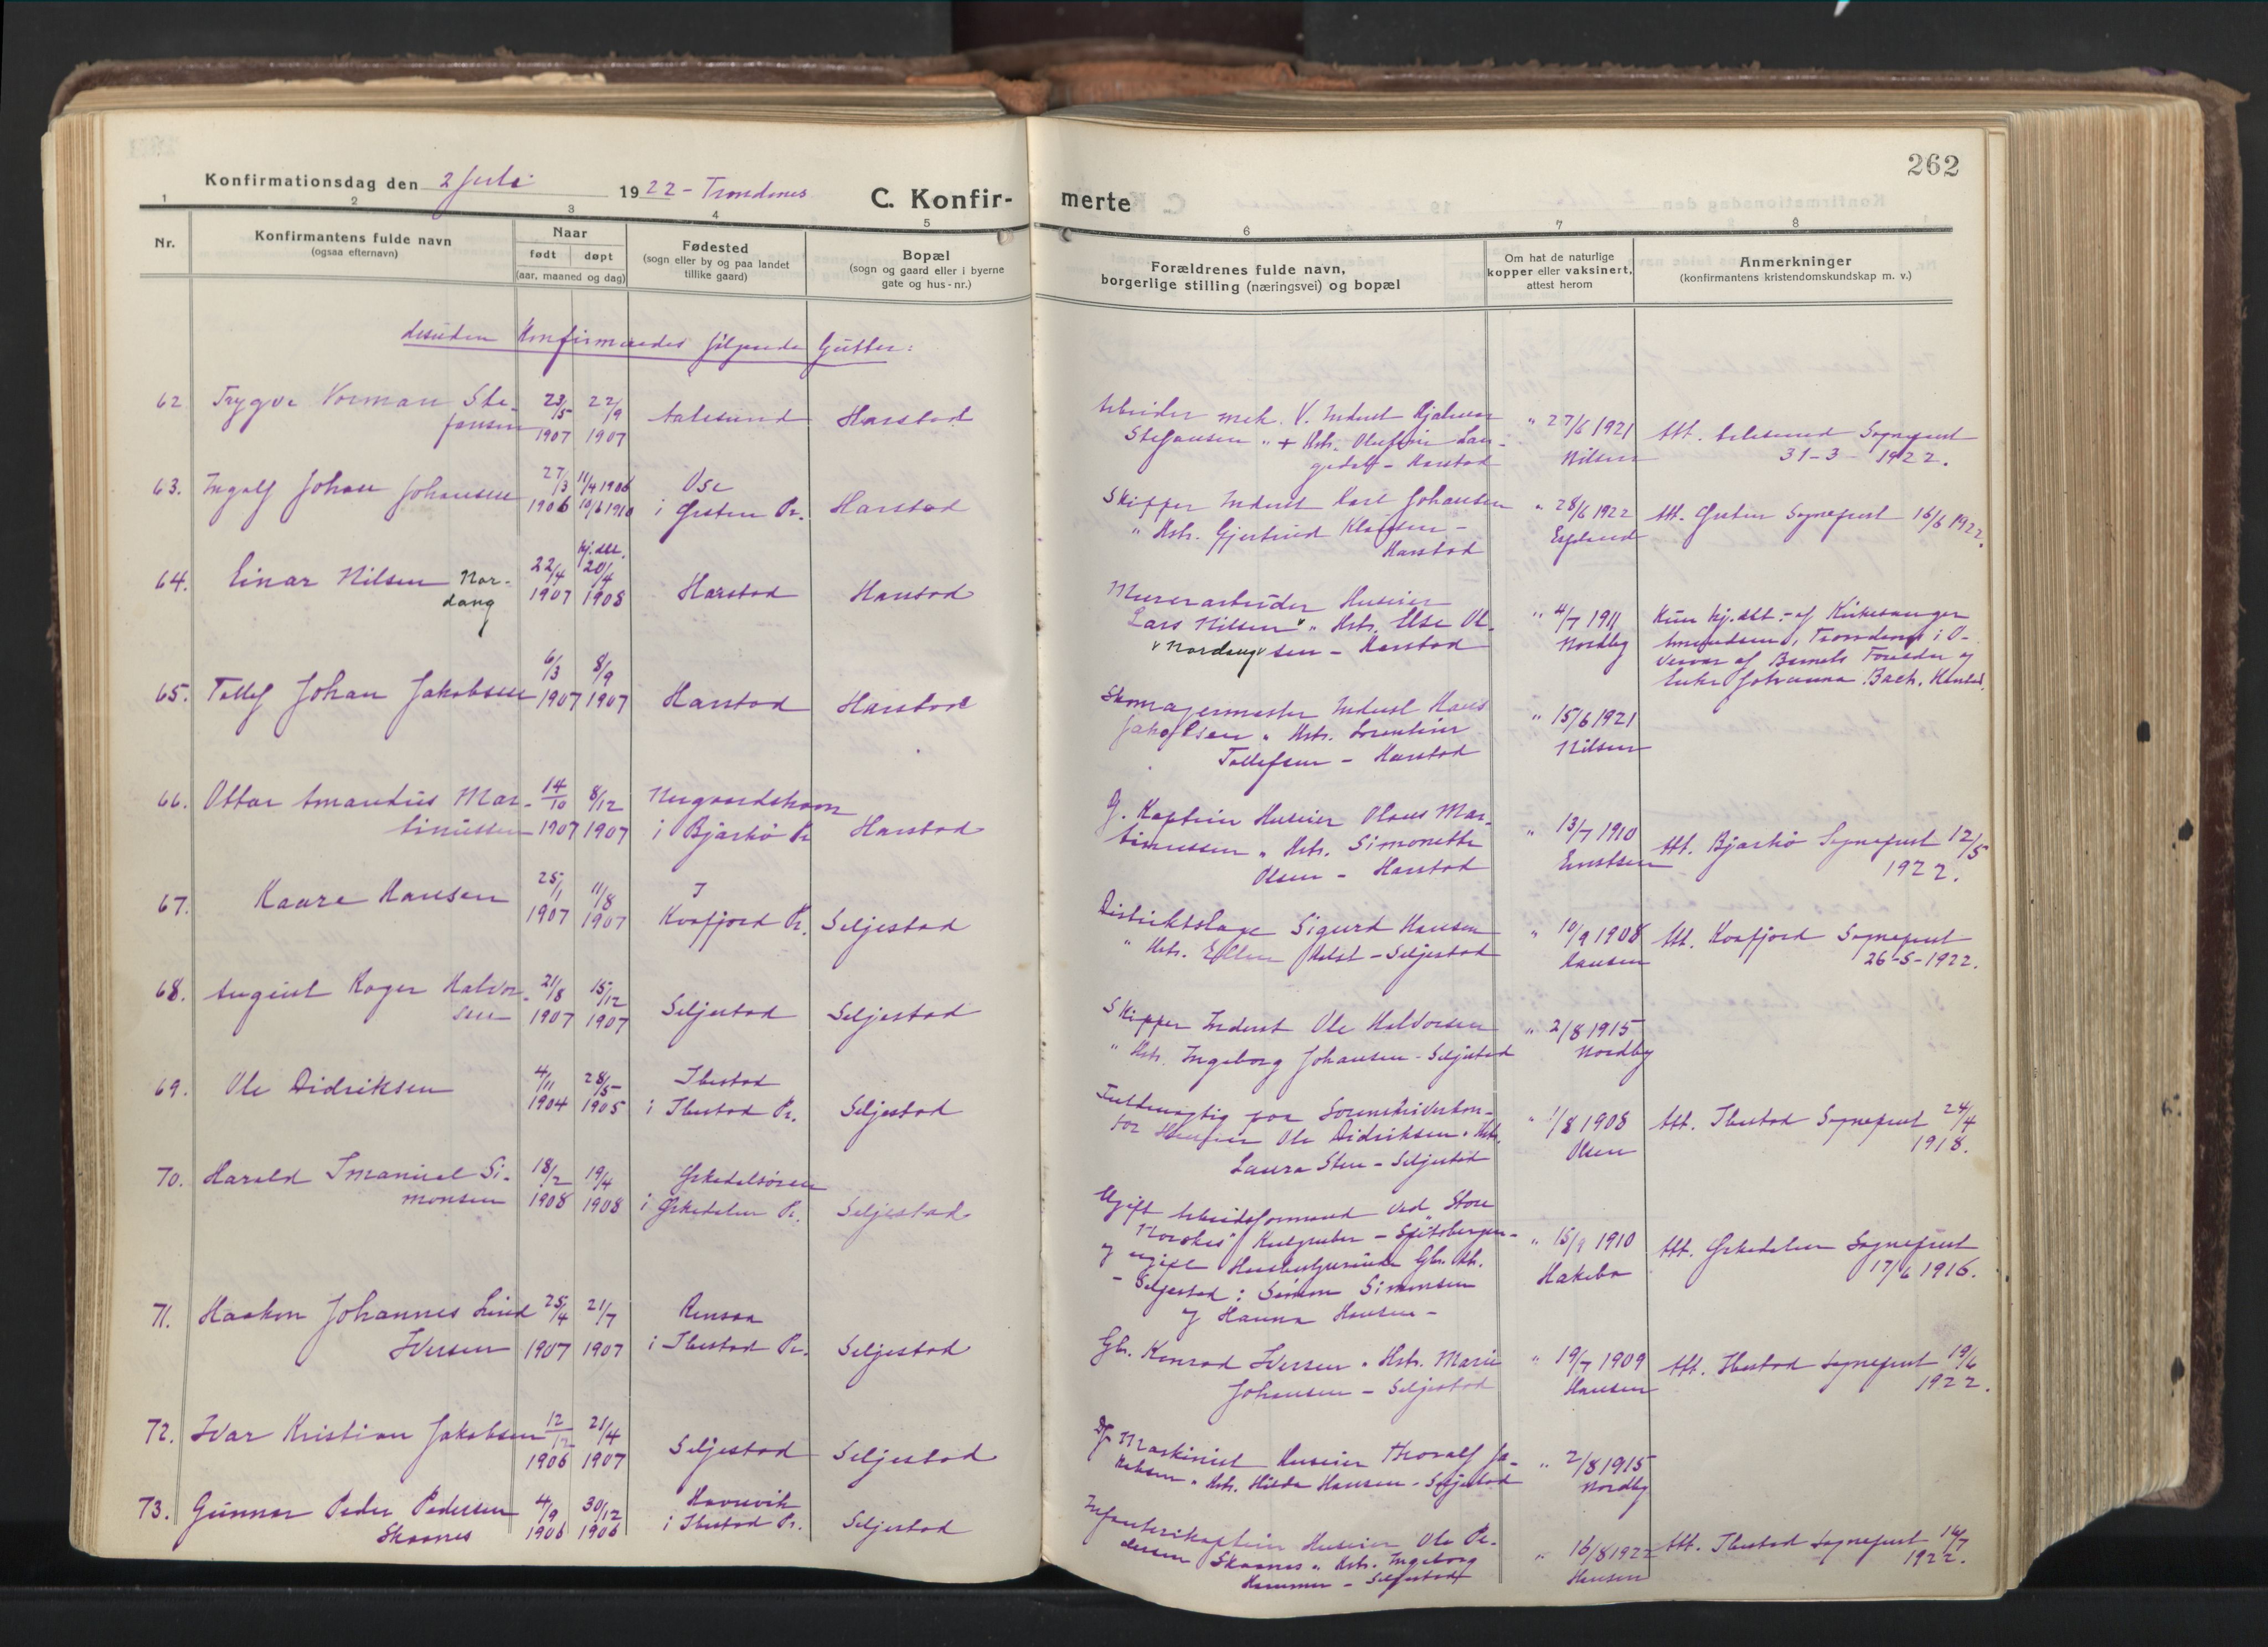 262
Konfirmationsdag den 2 Juli 1922 - Trondenes
C. Konfir-
merte
1
2
3
4
5
6
7
8
Nr.
Konfirmantens fulde navn
(ogsaa efternavn)
Naar
født døpt
(aar, maaned og dag)
Fødested
(sogn eller by og paa landet
tillike gaard)
Bopæl
(sogn og gaard eller i byerne
gate og hus-nr.)
Forældrenes fulde navn,
borgerlige stilling (næringsvei) og bopæl
Om hat de naturlige
kopper eller vaksinert,
attest herom
Anmerkninger
(konfirmantens kristendomskundskap m. v.)
desuden Konfirmeredes følgende Gutter:
62 Trygve Norman Ste-
fansen
23/5 1907
22/9 1907
Aalesund
Harstad
Arbeider mek. V. Inderst Hjalmar
Stefansen " + Hstr. Olufine Lan-
gedal - Harstad
" 27/6 1921
Nilsen
Att. Aalesund Sogneprest
31-3-1922.
63. Ingolf Johan Johansen
27/3 1906
11/4 1906
10/6 1910
Ose
i Gratangen Pr.
Harstad
Skipper Inderst Karl Johansen
" Hstr. Gjertrud Klausen -
Harstad
" 28/6 1922
Att. Sogneprest 16/6 1922.
64. Einar Nilsen Nor-
dang
22/4 1907
hj.dbt.
20/4 1908
Harstad
Harstad
Murerarbeider Huseier
Lars Nilsen " Hstr. Else Ol-
" Nordang " sen - Harstad
" 4/7 1911
Nordby
Kun hj.dbt. - af Kirkesanger
Amundsen, Trondenes i O-
vervær af Barnets Forældre og
Enke Johanna Bach. Harstad.
65. Tollef Johan Jakobsen
6/3 1907
8/9 1907
Harstad
Harstad
Skomagermester Inderst Hans
Jakobsen " Hstr. Lorentine
Tollefsen - Harstad
" 15/6 1921
Nilsen
66. Ottar Amandus Mar-
tinussen
14/10 1907
8/12 1907
i Bjarkø Pr
Harstad
Kaptein Huseier Olaus Mar-
tinussen " Hstr. Simonette
Olsen - Harstad
" 13/7 1910
Ernstsen
Att. Bjarkø Sogneprest 12/5
1922.
67. Kaare Hansen
25/1 1907
11/8 1907
I
Kvæfjord Pr.
Seljestad
Distriktslæge Sigurd Hansen
" Hstr. Ellen Holst - Seljestad
" 10/9 1908
Hansen
Att. Kvæfjord Sogneprest
26-5-1922.
68. August Roger Halvor-
sen
21/8 1907
15/12 1907
Seljestad
Seljestad
Skipper Inderst Ole Halvorsen
" Hstr. Ingeborg Johansen - Seljestad
" 2/8 1915
Nordby
69. Ole Didriksen
4/11 1904
28/5 1905
Ibestad
i Ibestad Pr.
Seljestad
Fuldmægtig paa Sorenskriverkon-
tor Huseier Ole Didriksen " Hstr.
Laura Sten - Seljestad
" 1/8 1908
Olsen
Att. Ibestad Sogneprest 24/4
1918.
70. Harald Imanuel Si-
monsen
18/2 1908
19/4 1908
Ørkedalsøren
i Ørkedalen Pr.
Seljestad
Ugift Arbeidsformand ved "Store
Norske" Kulgruber - Spitsbergen -
og ugift
- Seljestad: Simon Simonsen
og Hanna Hansen -
" 15/9 1910
Hakebo
Att. Ørkedalen Sogneprest
17/6 1916.
71. Haakon Johannes Lind
Iversen
25/4 1907
21/7 1907
Rensaa
i Ibestad Pr.
Seljestad
Gbr. Konrad Iversen " Hstr. Marie
Johansen - Seljestad
" 19/7 1909
Hansen
Att. Ibestad Sogneprest 19/6
1922.
72. Ivar Kristian Jakobsen
12/12 1906
21/4 1907
Seljestad
Seljestad
Maskinist Huseier Thoralf Ja-
kobsen " Hstr. Hilda Hansen - Seljestad
" 2/8 1915
Nordby
73. Gunnar Peder Pedersen
Skaanes
4/9 1906
30/12 1906
Havnvik
i Ibestad Pr.
Seljestad
Infanterikaptein Huseier Ole Pe-
dersen Skaanes " Hstr. Ingeborg
Hammer - Seljestad
" 16/8 1922
Hansen
Att. Ibestad Sogneprest 14/7
1922.